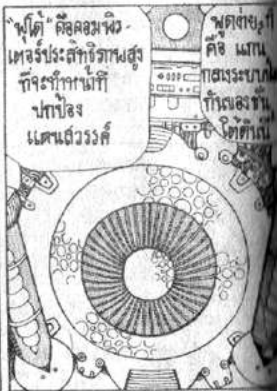 "ฟูโด้" คือคอมพิว-
เตอร์ประสิทธิภาพสูง
ที่จะทำหน้าที่
ปกป้อง
แดนสวรรค์
พูดง่าย,
คือ แกน
กลางระบบ
ใต้ดิน